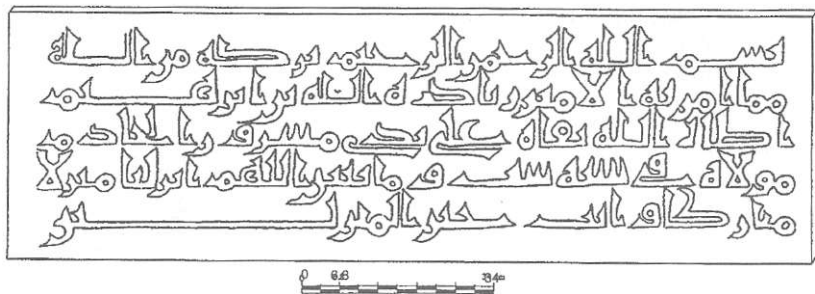 بسم الله الرحمن الرحيم بركة من الله
مما امر به الامير زيادة الله بن ابراهيم
اطال الله بقاه على يدي مسرور الخادم
مولاه في سنة ست و مايتين اللهم انزلنا منزلا
مباركا و انت خير المنزلين
0